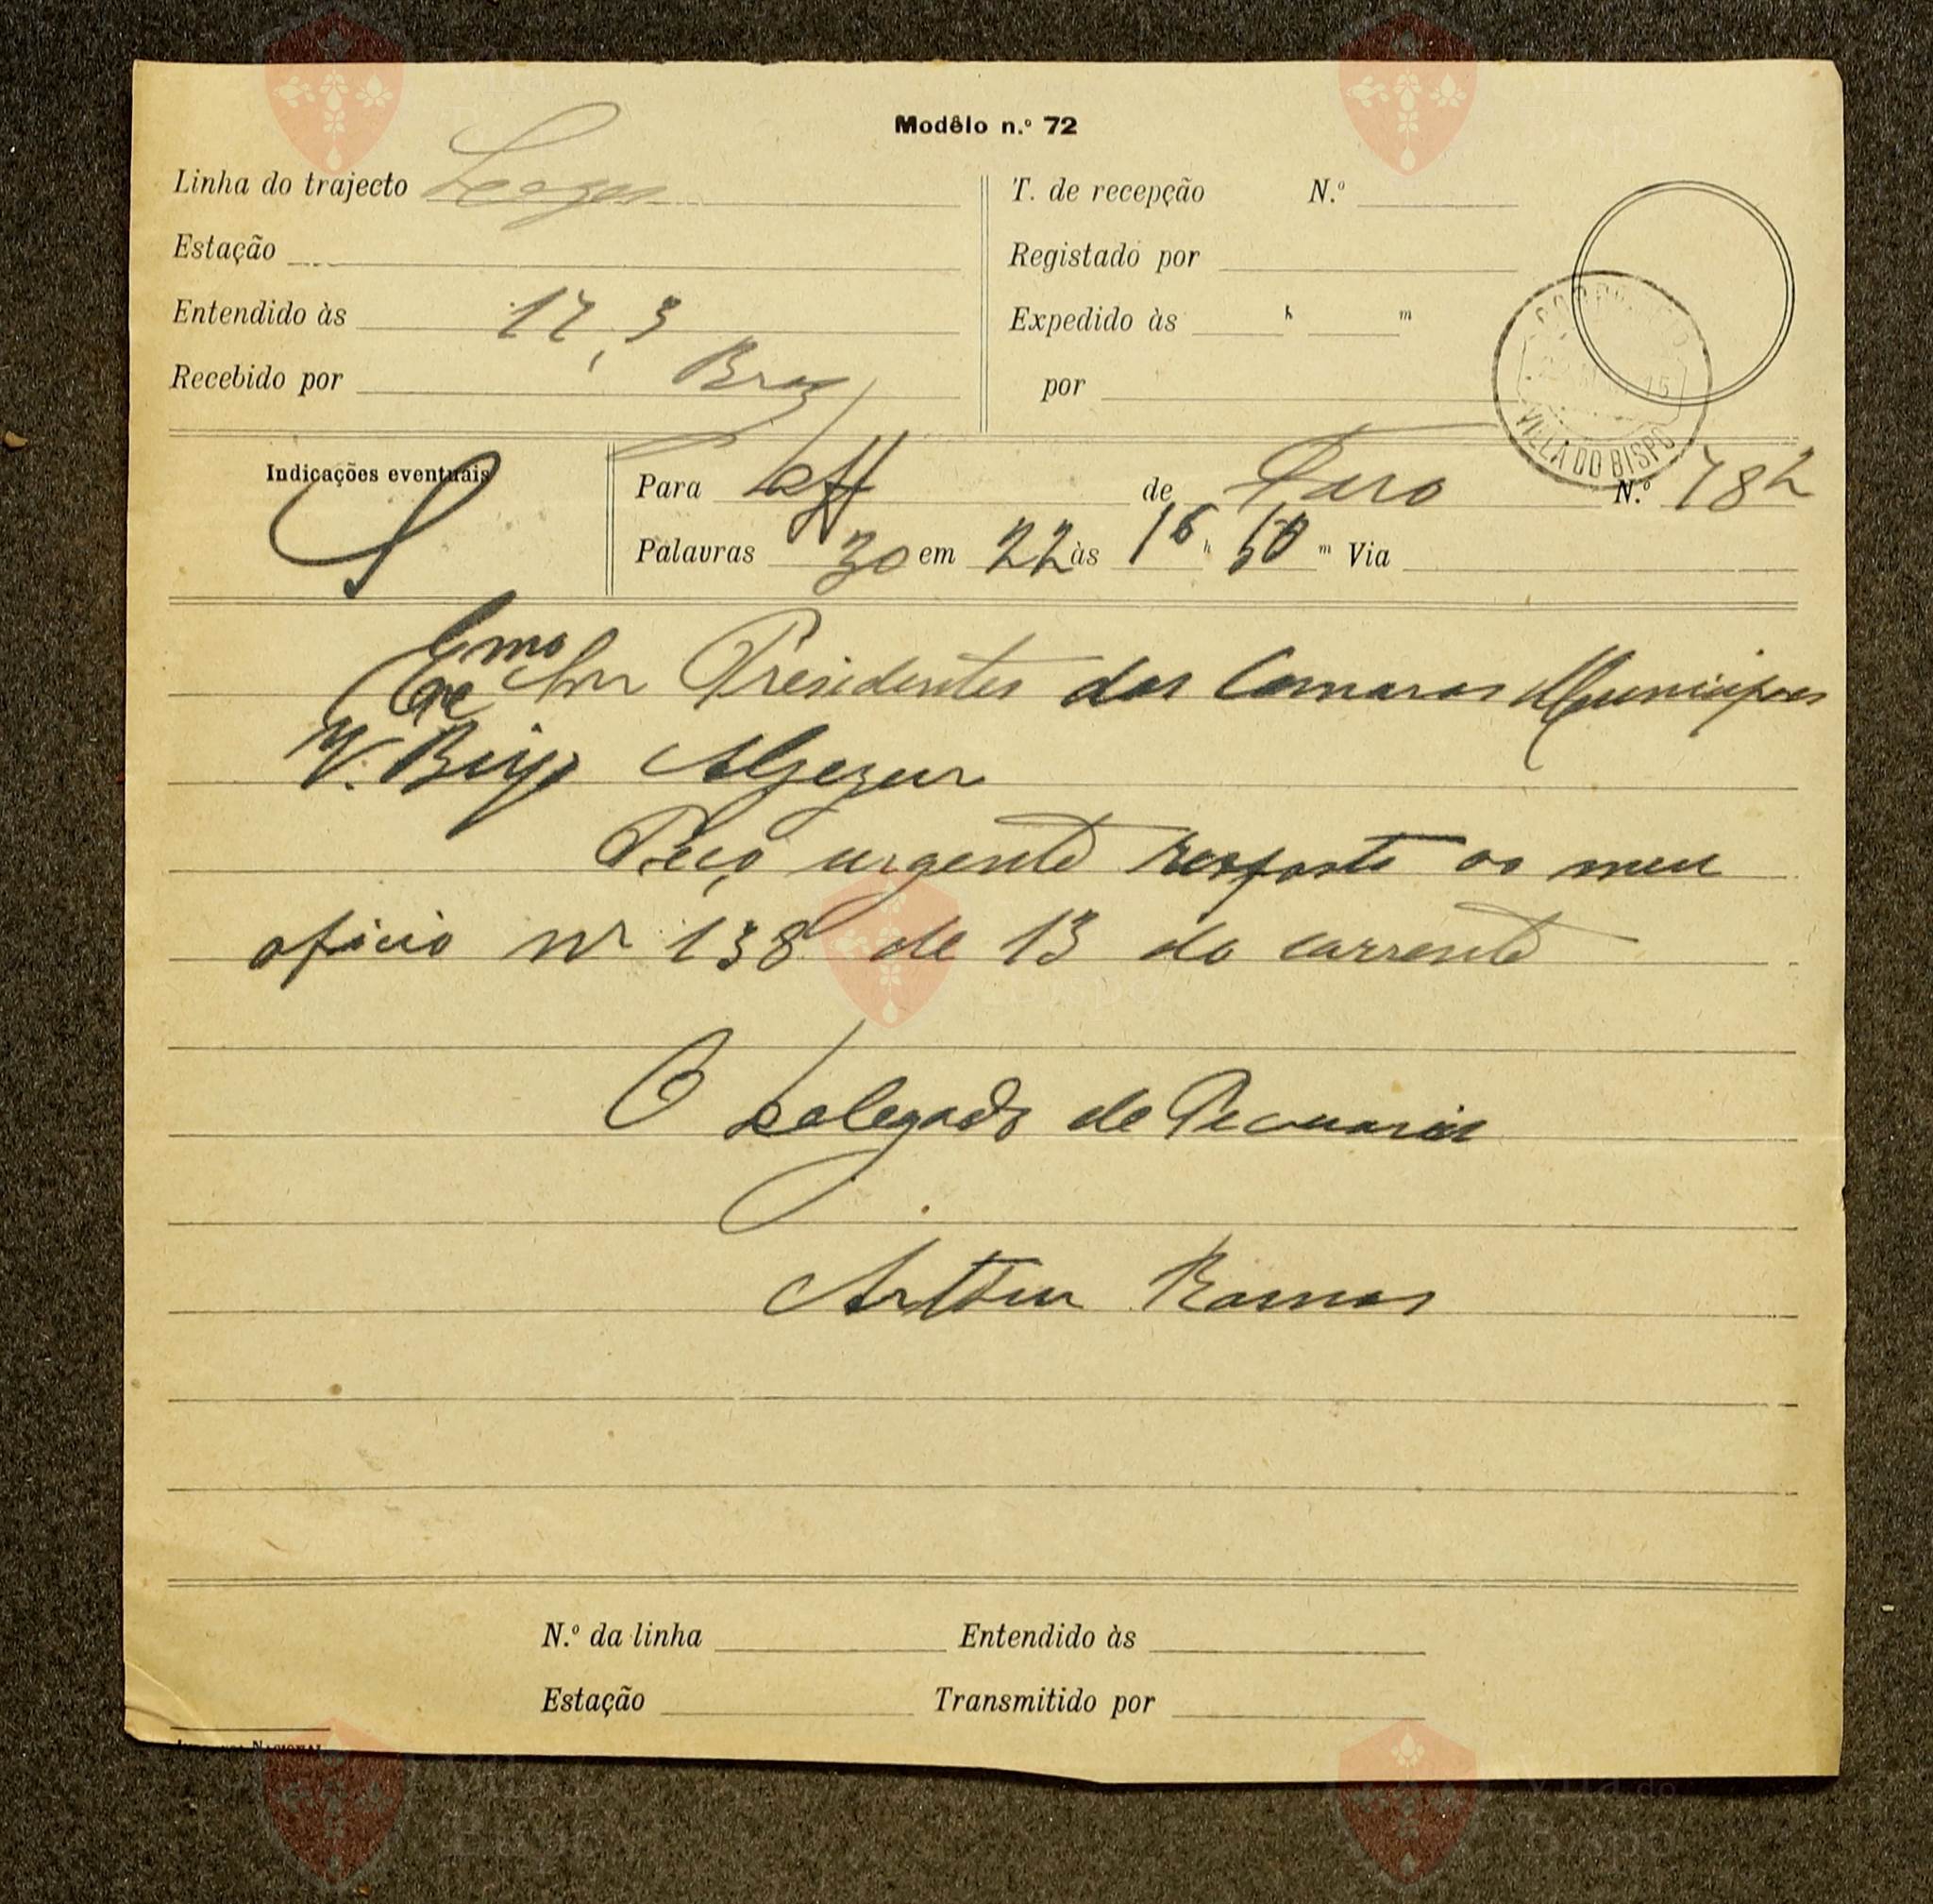 Modêlo n.º 72
Linha do trajecto Lagos
Estação
Entendido às 17,3
Recebido por Braz
T. de recepção N.º
Registado por
Expedido às h m
por
CORREIO
VILLA DO BISPO
Indicações eventuais S
Para de Faro N.º 782
Palavras 30 em 22 às 16 h 50 m Via
Exmo Snr Presidentes das Camaras Municipaes
V. Bispo Aljezur
Peço urgente resposta ao meu
oficio nr 138 de 13 do corrente
O Delegado de Pecuaria
Arthur Ramos
N.º da linha Entendido às
Estação Transmitido por
NACIONAL
Vila do
Bispo